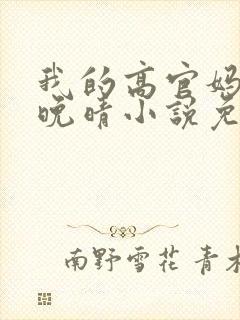 我的高官妈
晚晴小说免
南野雪花 青木